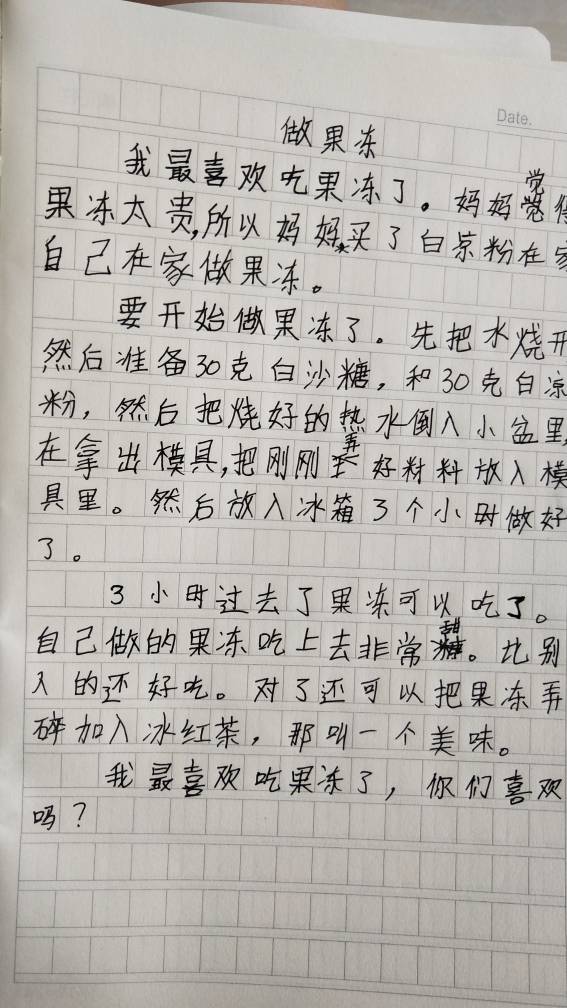 Date.
做果冻
我最喜欢吃果冻了。妈妈觉得
果冻太贵,所以妈妈买了白凉粉在家
自己在家做果冻。
要开始做果冻了。先把水烧开
然后准备30克白沙糖，和30克白凉
粉，然后把烧好的热水倒入小盆里,
在拿出模具,把刚刚弄好材料放入模
具里。然后放入冰箱3个小时做好
了。
3小时过去了果冻可以吃了。
自己做的果冻吃上去非常甜。比别
人的还好吃。对了还可以把果冻弄
碎加入冰红茶，那叫一个美味。
我最喜欢吃果冻了，你们喜欢
吗？